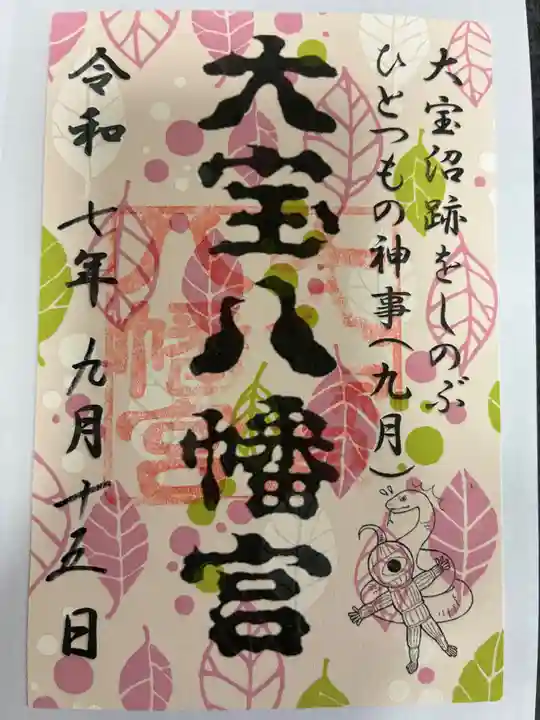 大宝沼跡をしのぶ
ひとつもの神事(九月)
大宝八幡宮
令和 七年 九月十五日